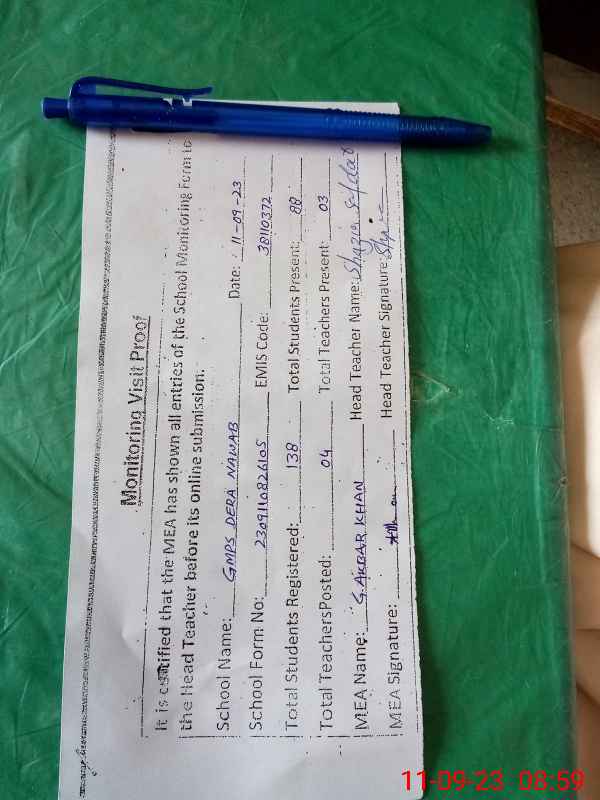 Monitoring Visit Proof
It is certified that the MEA has shown all entries of the School Monitoring Form to
the Head Teacher before its online submission.
School Name: GMPS DERA NAWAB Date: 11-09-23
School Form No: 2309110826105 EMIS Code: 38110372
Total Students Registered: 138 Total Students Present: 88
Total TeachersPosted: 04 Total Teachers Present: 03
MEA Name: G. AKBAR KHAN Head Teacher Name: Shazia Safdar
MEA Signature: Head Teacher Signature:
11-09-23 08:59